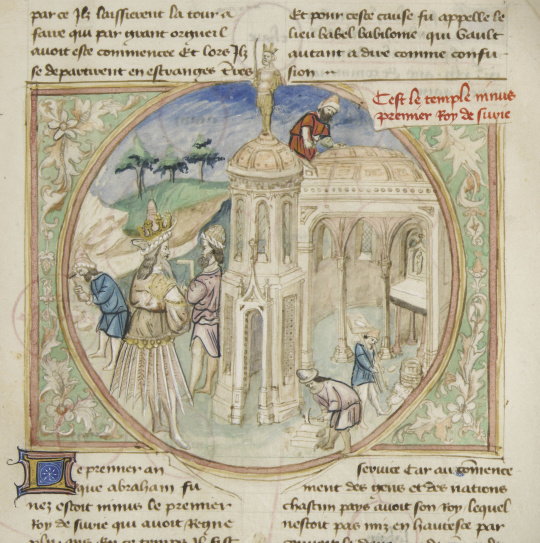 par ce Ilz laissierent la tour a
faire qui par grant orgueil
avoit este commencee Et lors Ilz
se departirent en estranges Tres
Et pour ceste cause fu appelle le
lieu babel babilonie qui vault
autant a dire comme confu
sion
Cest le temple ninus
premier Roy de surie
Le premier an
que abraham fu
nez estoit ninus le premier
Roy de surie qui avoit Regne
En ce temps Il fist
service Car au comence
ment des gens et des nations
chascun pays avoit son Roy lequel
nestoit pas mis en haultesse par